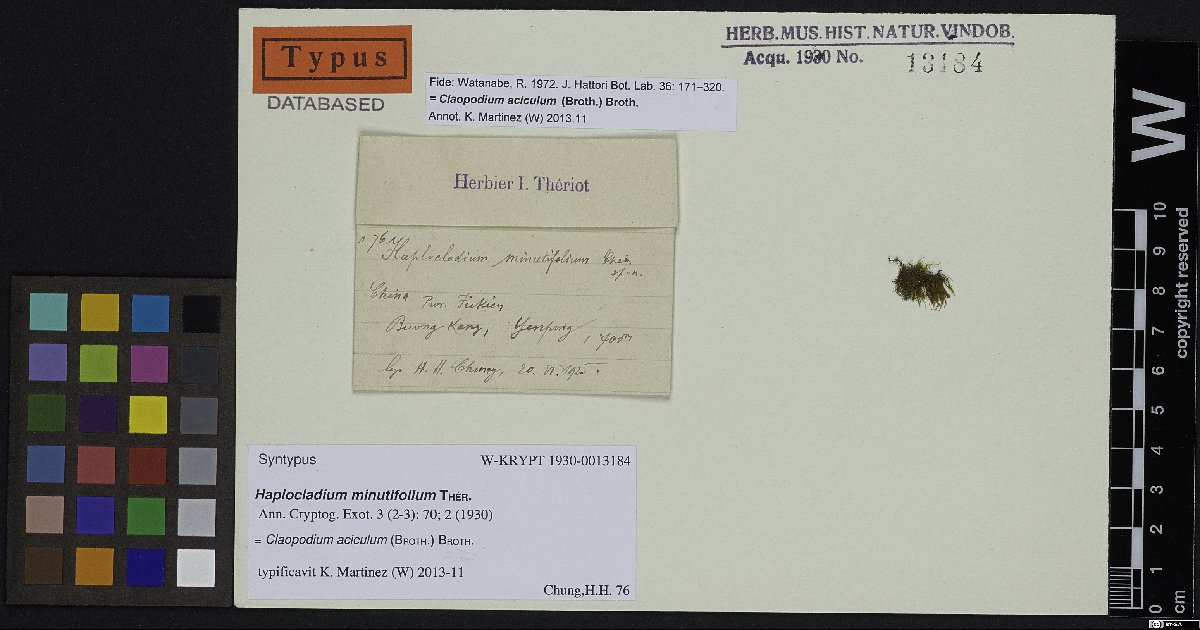 Typus
DATABASED
HERB. MUS. HIST. NATUR. VINDOB.
Acqu. 1930 No. 13184
Fide: Watanabe, R. 1972. J. Hattori Bot. Lab. 36: 171–320.
= Claopodium aciculum (Broth.) Broth.
Annot. K. Martinez (W) 2013.11
Herbier I. Thériot
n 76
Haplocladium minutifolium
sp. n.
China Prov. Fukien
Buong Kang, Yenping, 700m
leg. H. H. Chung, 20.
Syntypus W-KRYPT 1930-0013184
Haplocladium minutifolium THÉR.
Ann. Cryptog. Exot. 3 (2-3): 70; 2 (1930)
= Claopodium aciculum (BROTH.) BROTH.
typificavit K. Martinez (W) 2013-11
Chung,H.H. 76
W
0 1 2 3 4 5 6 7 8 9 10
cm
copyright reserved